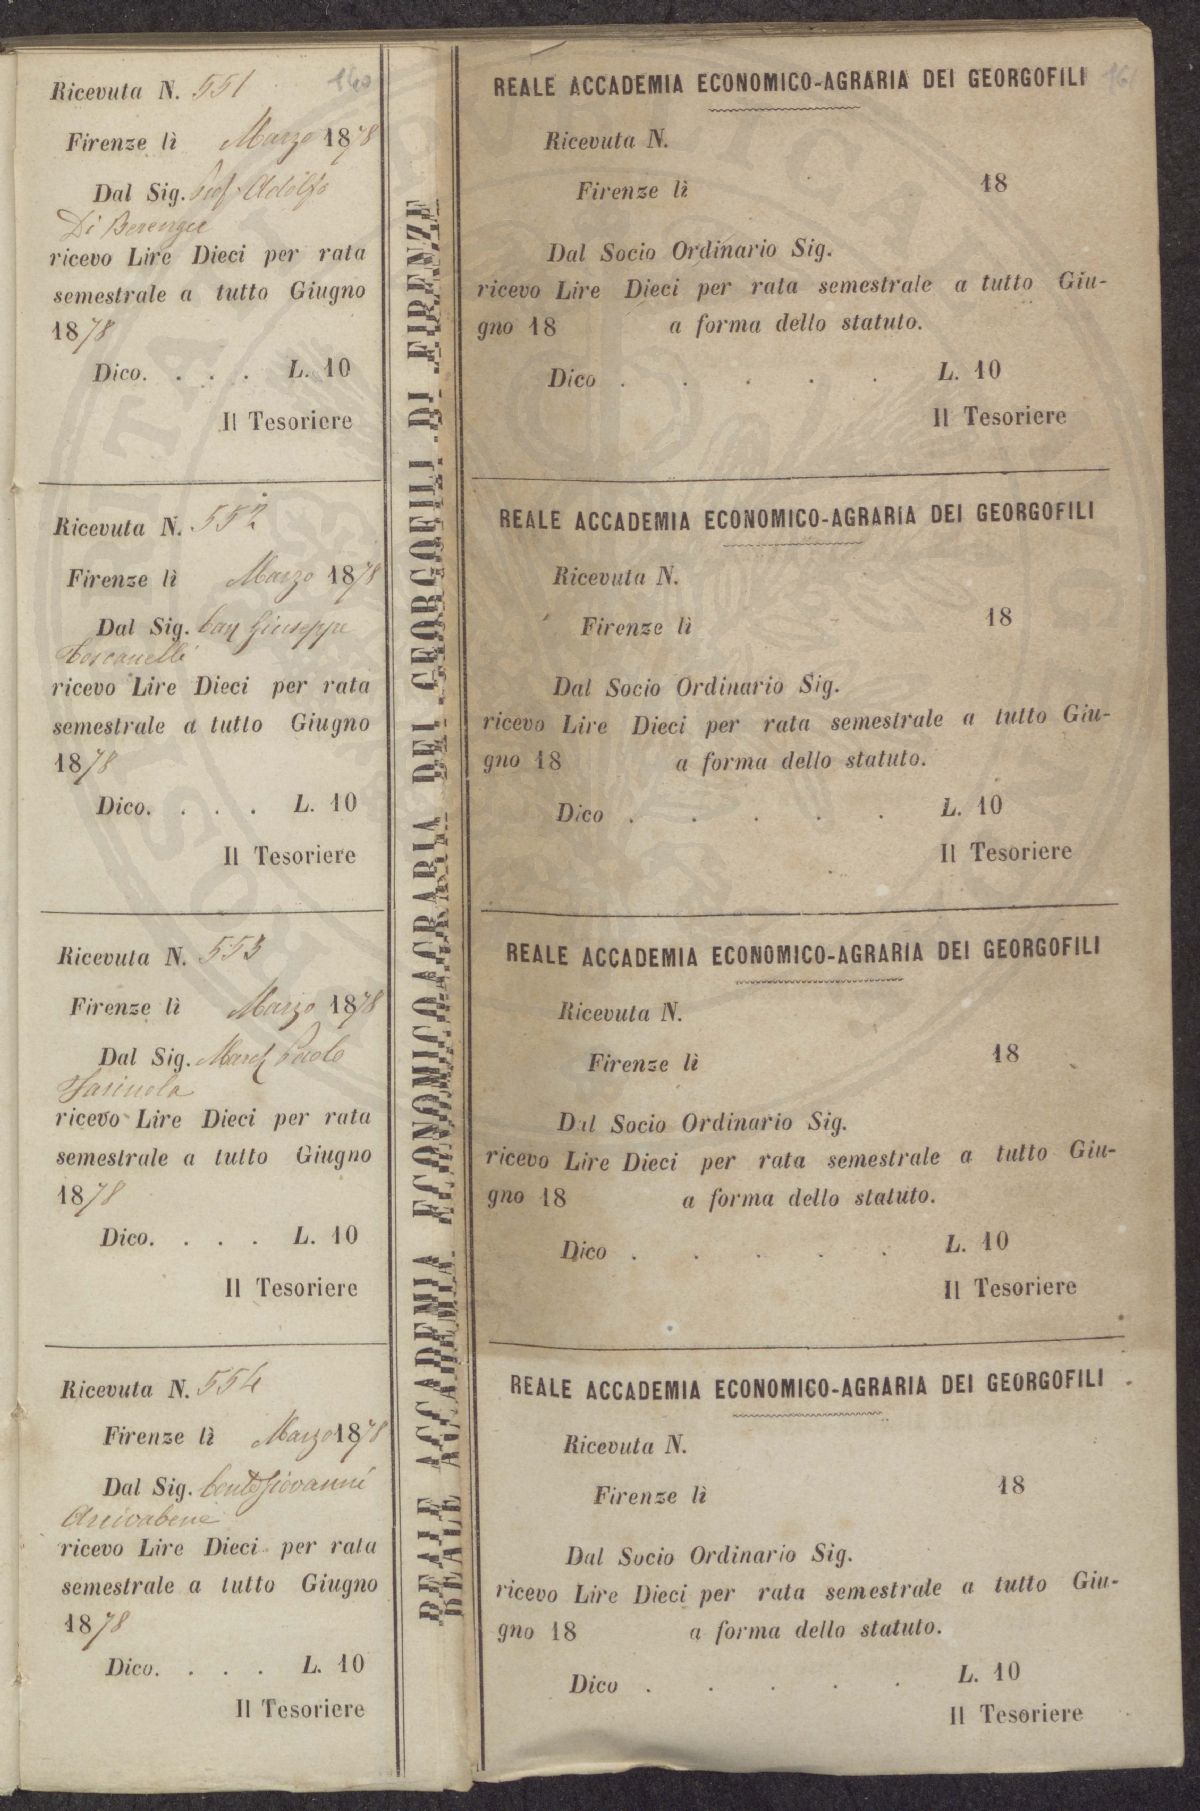 Ricevuta N. 551
160
Firenze lì Marzo 1878
Dal Sig. Prof. Adolfo
Di Berenger
ricevo Lire Dieci per rata
semestrale a tutto Giugno
1878
Dico. . . . L. 10
Il Tesoriere
Ricevuta N. 552
Firenze lì Marzo 1878
Dal Sig. Cav Giuseppe
Toscanelli
ricevo Lire Dieci per rata
semestrale a tutto Giugno
1878
Dico. . . . L. 10
Il Tesoriere
Ricevuta N. 553
Firenze lì Marzo 1878
Dal Sig. March Paolo
Farinola
ricevo Lire Dieci per rata
semestrale a tutto Giugno
1878
Dico. . . . L. 10
Il Tesoriere
Ricevuta N. 554
Firenze lì Marzo 1878
Dal Sig. Conte Giovanni
Arrivabene
ricevo Lire Dieci per rata
semestrale a tutto Giugno
1878
Dico. . . . L. 10
Il Tesoriere
REALE ACCADEMIA ECONOMICO AGRARIA DEI GEORGOFILI DI FIRENZE
REALE ACCADEMIA ECONOMICO-AGRARIA DEI GEORGOFILI
Ricevuta N.
Firenze lì 18
Dal Socio Ordinario Sig.
ricevo Lire Dieci per rata semestrale a tutto Giu-
gno 18 a forma dello statuto.
Dico . . . . . L. 10
Il Tesoriere
REALE ACCADEMIA ECONOMICO-AGRARIA DEI GEORGOFILI
Ricevuta N.
Firenze lì 18
Dal Socio Ordinario Sig.
ricevo Lire Dieci per rata semestrale a tutto Giu-
gno 18 a forma dello statuto.
Dico . . . . . L. 10
Il Tesoriere
REALE ACCADEMIA ECONOMICO-AGRARIA DEI GEORGOFILI
Ricevuta N.
Firenze lì 18
Dal Socio Ordinario Sig.
ricevo Lire Dieci per rata semestrale a tutto Giu-
gno 18 a forma dello statuto.
Dico . . . . . L. 10
Il Tesoriere
REALE ACCADEMIA ECONOMICO-AGRARIA DEI GEORGOFILI
Ricevuta N.
Firenze lì 18
Dal Socio Ordinario Sig.
ricevo Lire Dieci per rata semestrale a tutto Giu-
gno 18 a forma dello statuto.
Dico . . . . . L. 10
Il Tesoriere